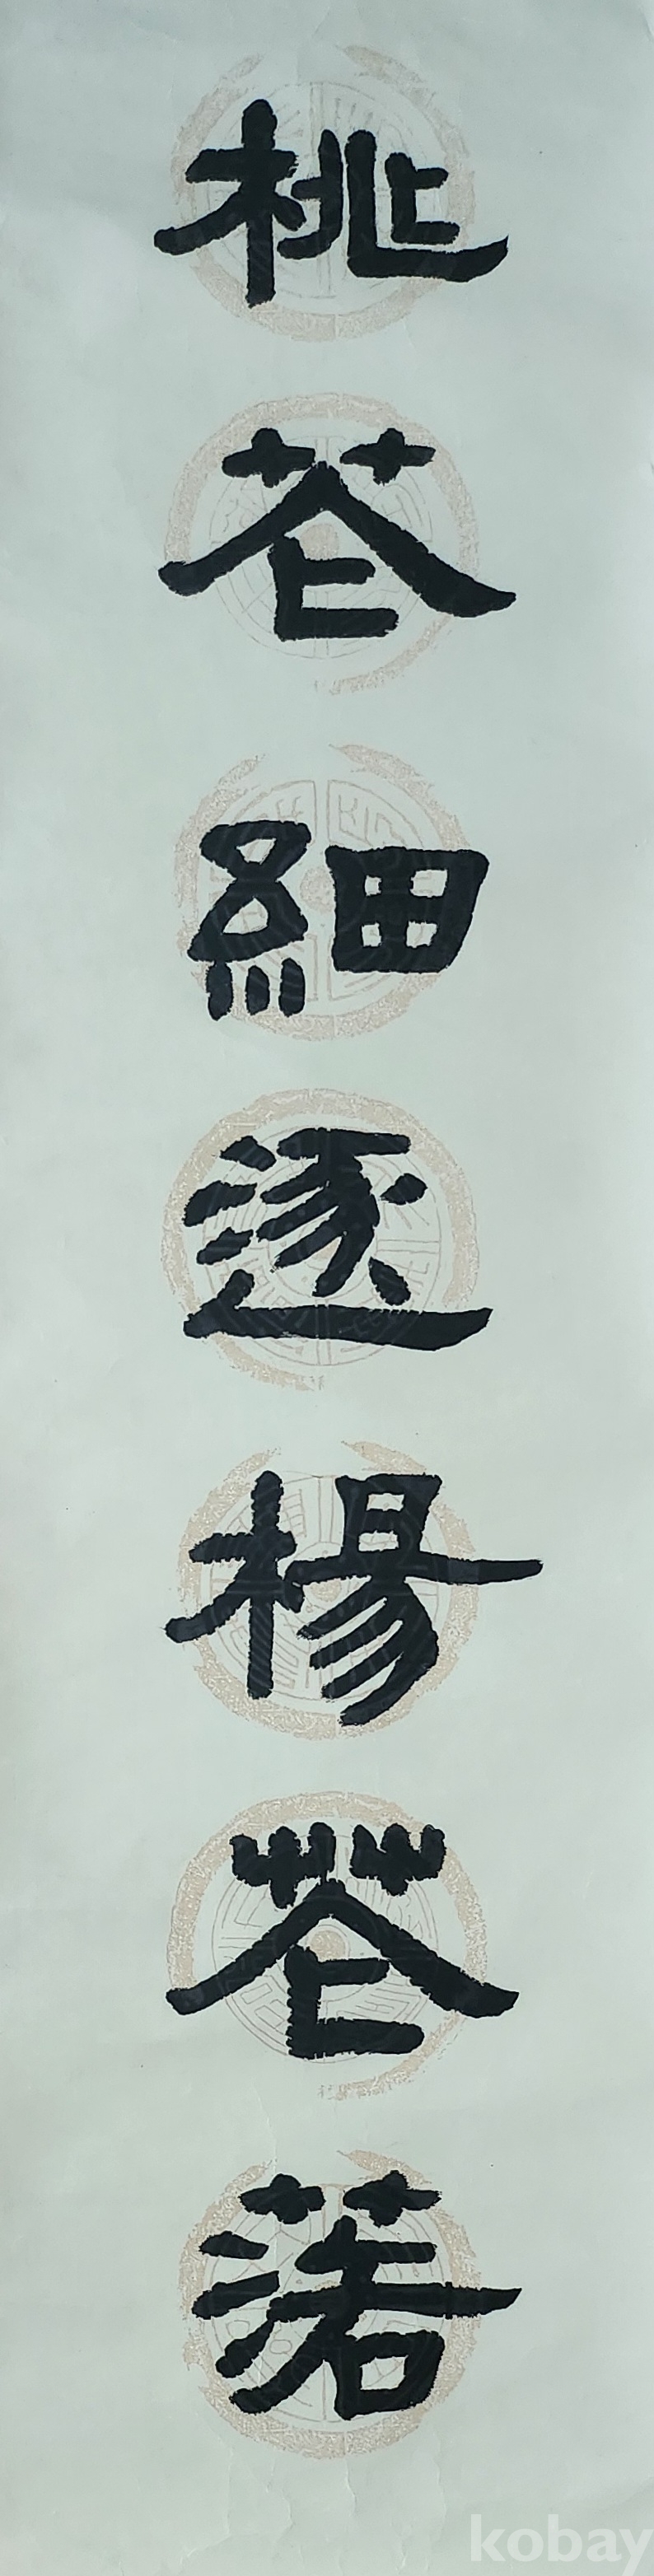 桃花細逐楊花落
kobay